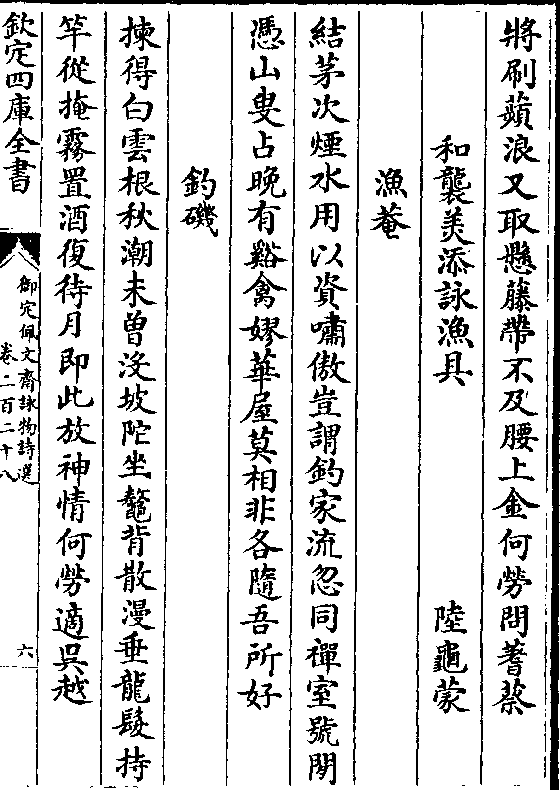 將刷蘋浪又取懸藤帶不及腰上金何勞問蓍蔡
和襲美添詠漁具 陸龜蒙
漁菴
結茅次煙水用以資嘯傲豈謂釣家流忽同禪室號閒
憑山叟占晚有谿禽嫪華屋莫相非各隨吾所好
釣磯
揀得白雲根秋潮未曾没坡陀坐鼇背散漫垂龍髮持
竿從掩霧置酒復待月即此放神情何勞適吳越
欽定四庫全書
御定佩文齋詠物詩選
卷二百二十八
六